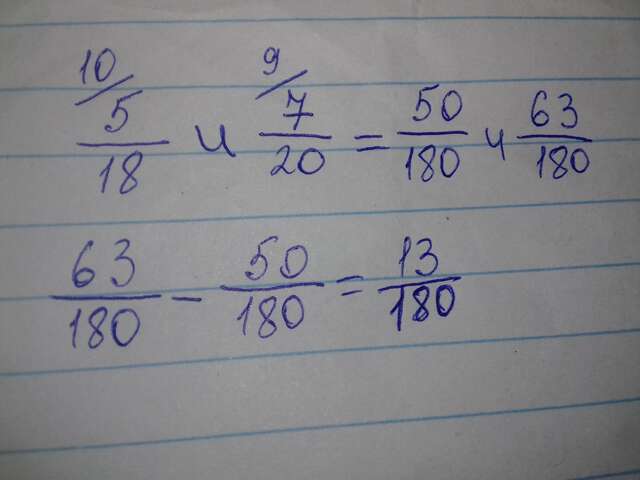 10/ 5/18 и 9/ 7/20 = 50/180 и 63/180
63/180 - 50/180 = 13/180